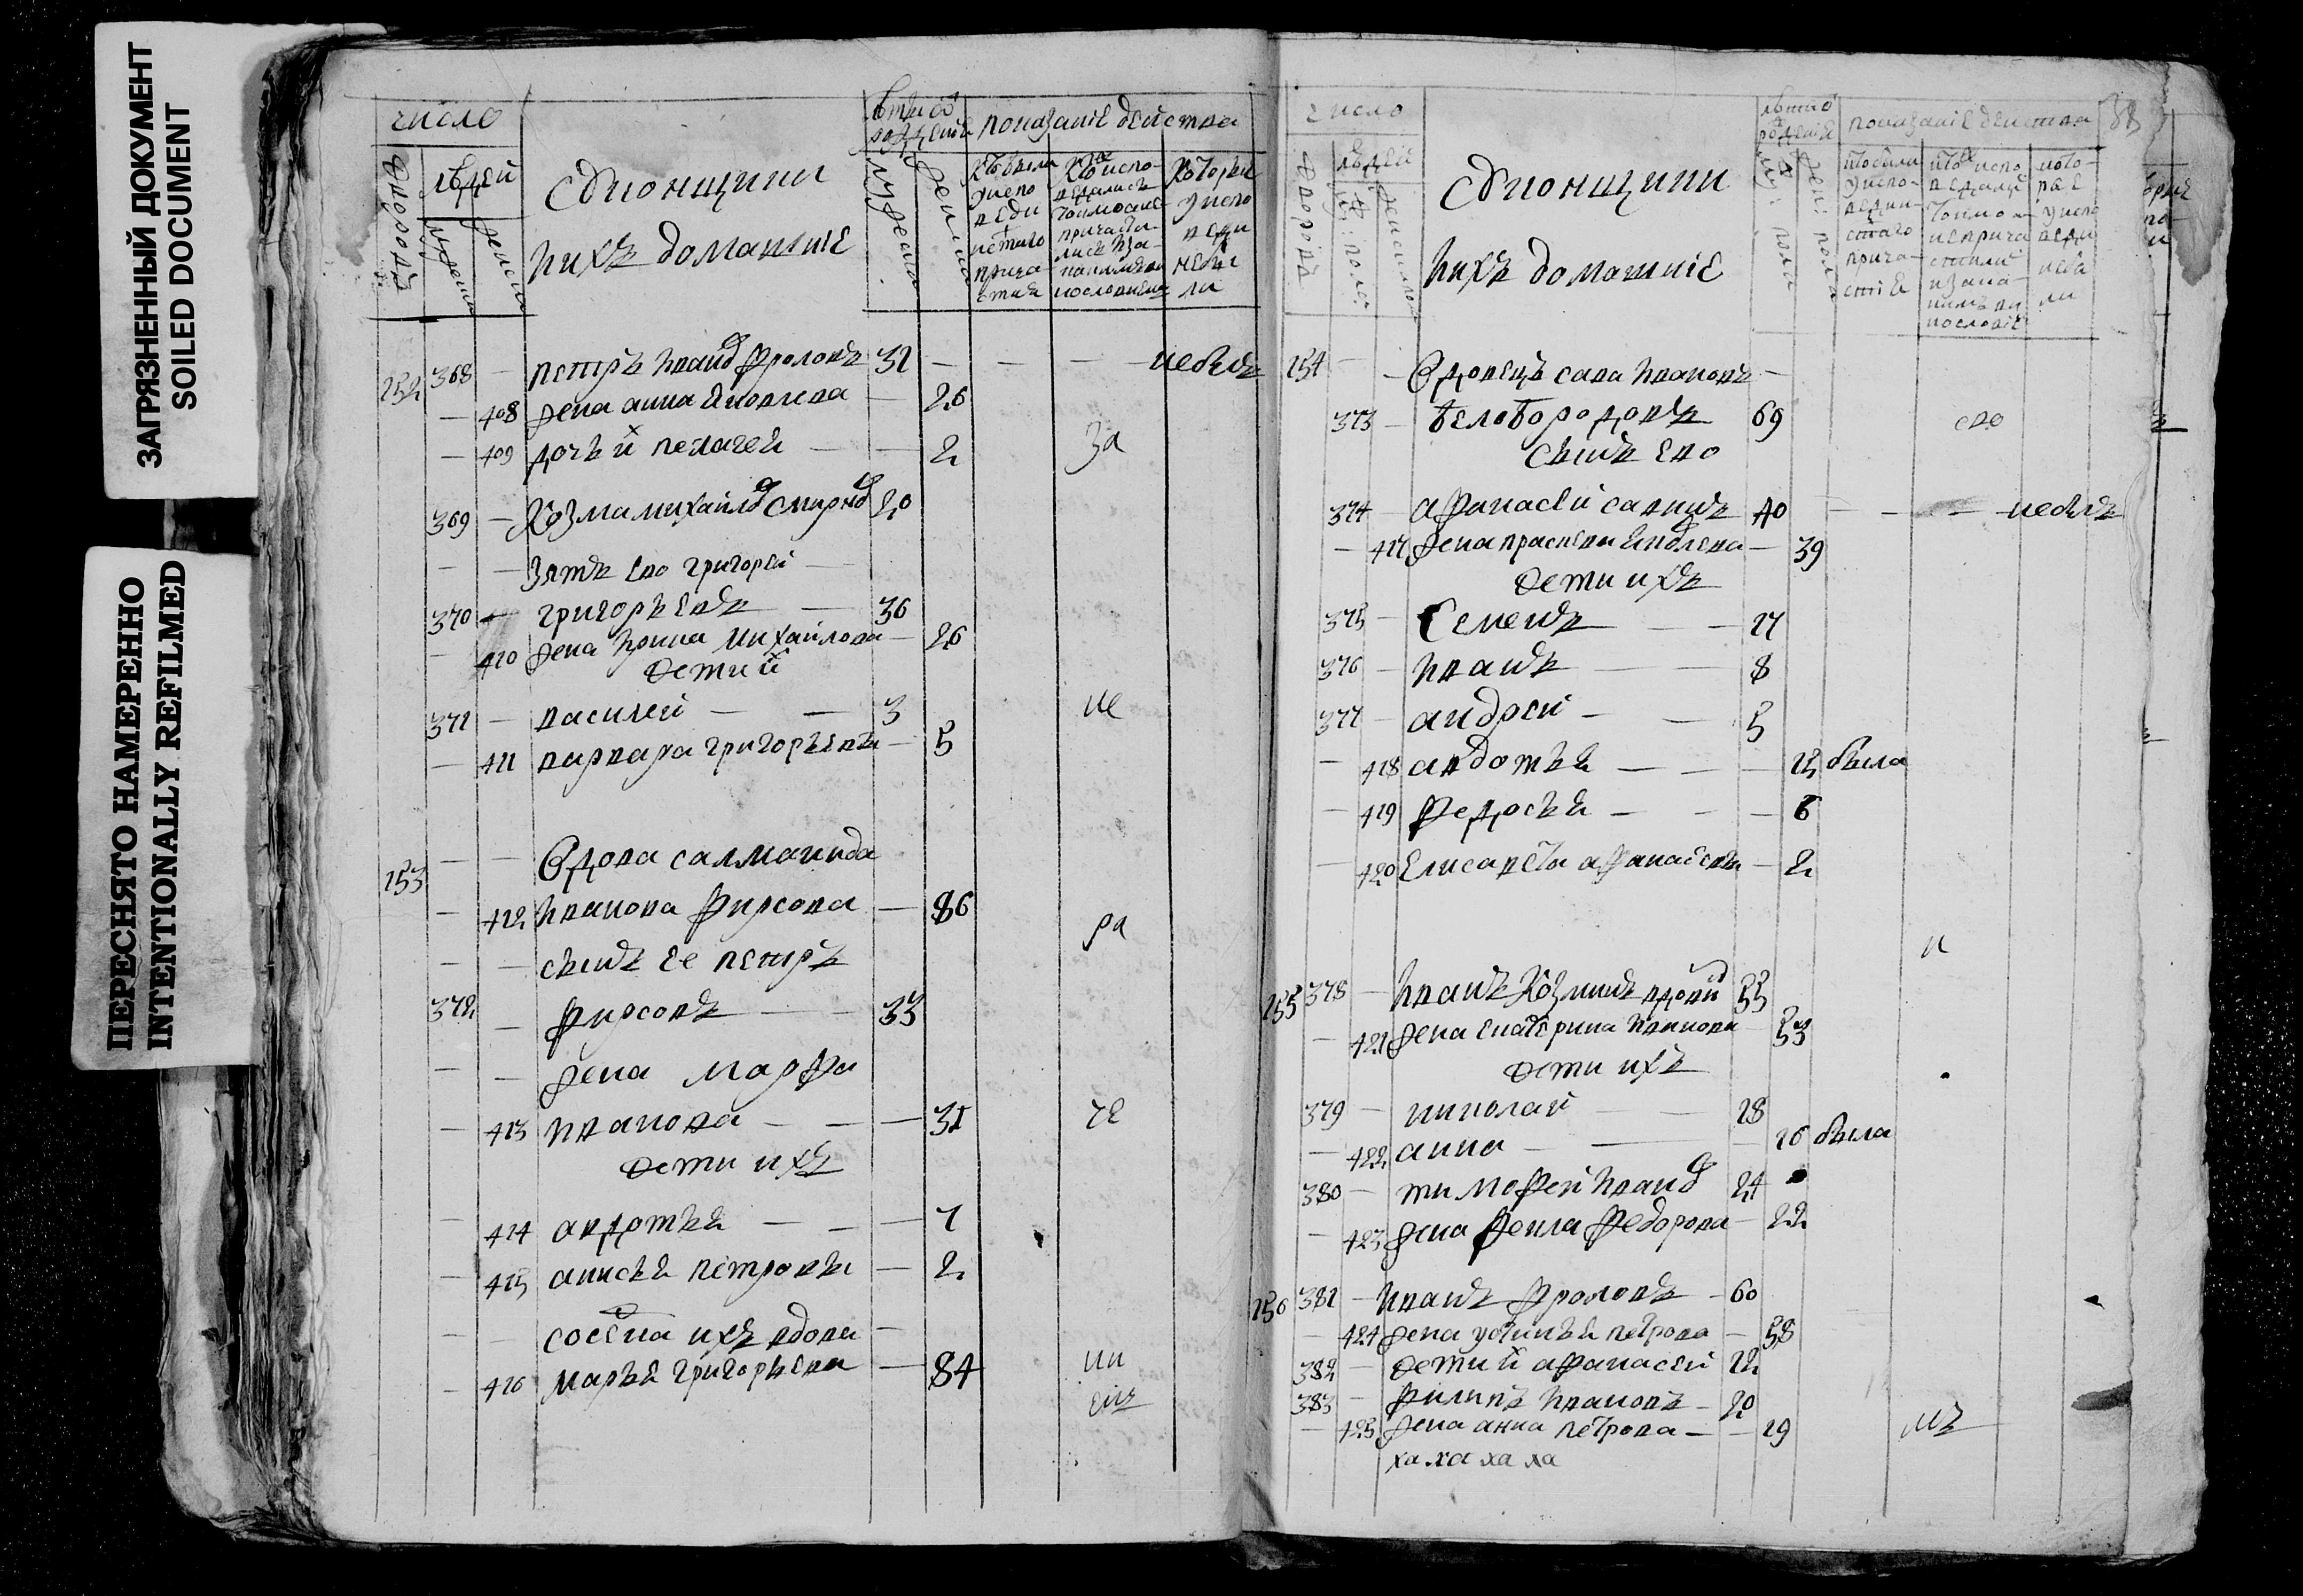 ЗАГРЯЗНЕННЫЙ ДОКУМЕНТ
SOILED DOCUMENT
ПЕРЕСНЯТО НАМЕРЕННО
INTENTIONALLY REFILMED
число
людей
показаніе действа
152 368 — петръ Иванов фроловъ 31 — — — небылъ
— 408 жена анна Яковлева — 26
— 409 дочь их пелагея — — 2
за
369 — Козма михайлов Смирнов 20
— — Зять ево григорей —
370 — григорьевъ — 36
— 410 жена Ирина михайлова — 26
дети их
371 — василей — — 3
не
— 411 варвара григорьевы — 5
153 — — Вдова саламанида
— 412 Иванова фирсова — 86
ра
— — сынъ ее петръ
372 — фирсовъ — — 33
— — жена марфа
— 413 Иванова — — — 31
че
дети ихъ
— 414 авдотья — — — 7
— 415 анисья петровы — 2
— — соседка ихъ вдова —
— 416 марья григорьева — 84
ни
емъ
число
людей
показаніе действа
38
ихъ домашніе
154 — — Вдовецъ сава Ивановъ —
373 — белобородовъ 69
сво
сынъ ево
374 — афанасей савинъ 40 — — — небылъ
— 417 жена прасковья Яковлева — 39
дети ихъ
375 — Семенъ — — 17
376 — Иванъ — — 8
377 — андрей — — 5
— 418 авдотья — — — 12 была
— 419 федосья — — — 6
— 420 Елисавета афанасьевы — 2
и
155 378 — Иванъ Козминъ вдовин 55
— 421 жена екатерина Иванова 53
дети ихъ
379 — николай — 18
— 422 анна — — — 16 была
380 — тимофей Иванов 24
— 423 жена фекла федорова — 22
156 381 — Иванъ фроловъ — 60
— 424 жена устинья петрова — 58
382 — дети их афанасей 22
383 — филипъ Ивановъ — 20
— 425 жена анна петрова — — 19
мъ
ха ха ха ха